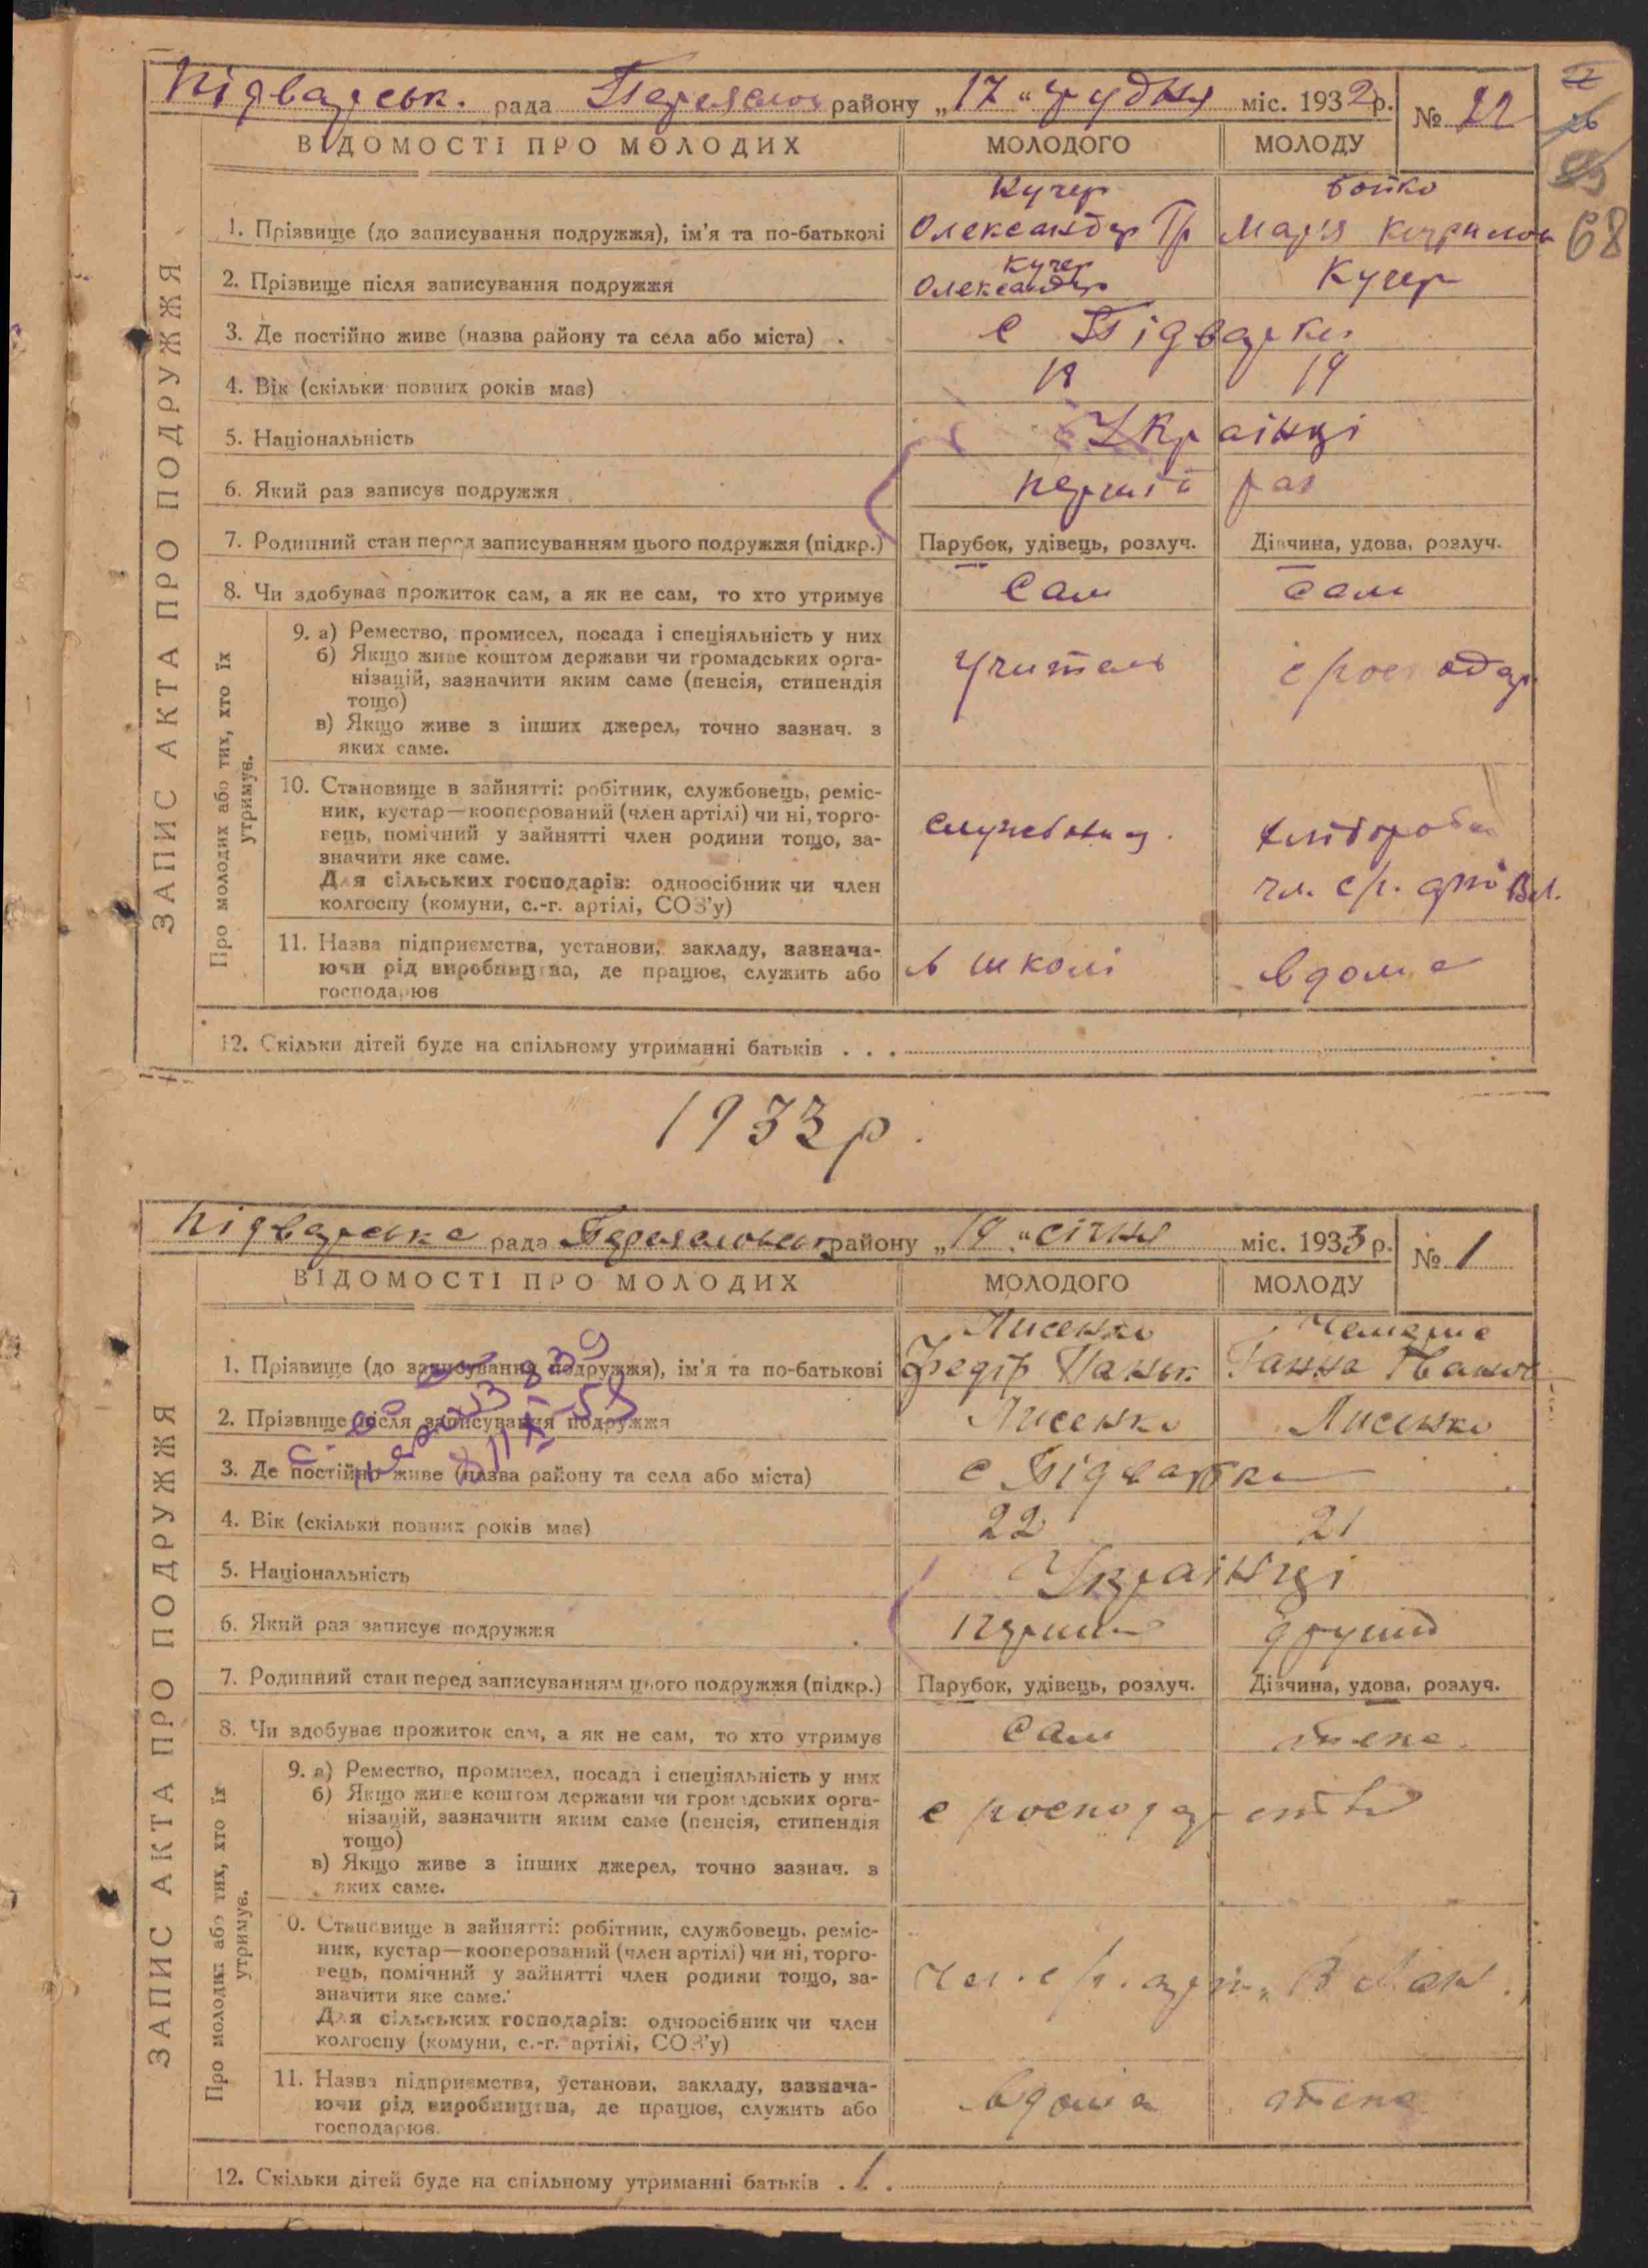 Підварськ. рада Переяслов району „17“ грудня міс. 1932 р. № 22
68
ВІДОМОСТІ ПРО МОЛОДИХ МОЛОДОГО МОЛОДУ
ЗАПИС АКТА ПРО ПОДРУЖЖЯ
Кучер Бойко
1. Прізвище (до записування подружжя), ім'я та по-батькові Олександр Гр Марія Кирилов
Кучер
2. Прізвище після записування подружжя Олександр Кучер
3. Де постійно живе (назва району та села або міста) . с Підварки
4. Вік (скільки повних років має) 18 19
5. Національність Українці
6. Який раз записує подружжя перший раз
7. Родинний стан перед записуванням цього подружжя (підкр.) Парубок, удівець, розлуч. Дівчина, удова, розлуч.
8. Чи здобуває прожиток сам, а як не сам, то хто утримує Сам сам
Про молодих або тих, хто їх утримує.
9. а) Ремество, промисел, посада і спеціяльність у них
б) Якщо живе коштом держави чи громадських орга-
нізацій, зазначити яким саме (пенсія, стипендія
тощо)
в) Якщо живе з інших джерел, точно зазнач. з
яких саме.
учитель
10. Становище в зайнятті: робітник, службовець, реміс-
ник, кустар—кооперований (член артілі) чи ні, торго-
вець, помічний у зайнятті член родини тощо, за-
значити яке саме.
Для сільських господарів: одноосібник чи член
колгоспу (комуни, с.-г. артілі, СОЗ'у)
службовець. хлібороба
чл. с/г.
11. Назва підприємства, установи, закладу, зазнача-
ючи рід виробництва, де працює, служить або
господарює
в школі вдома
12. Скільки дітей буде на спільному утриманні батьків . . .
1933 р.
Підварська рада Переяславськ району „19“ січня міс. 1933 р. № 1
ВІДОМОСТІ ПРО МОЛОДИХ МОЛОДОГО МОЛОДУ
ЗАПИС АКТА ПРО ПОДРУЖЖЯ
Лисенко
1. Прізвище (до записування подружжя), ім'я та по-батькові Федір Паньк. Ганна Іванов
2. Прізвище після записування подружжя Лисенко Лисенко
3. Де постійно живе (назва району та села або міста) с Підварки
4. Вік (скільки повних років має) 22 21
5. Національність Українці
6. Який раз записує подружжя перший другий
7. Родинний стан перед записуванням цього подружжя (підкр.) Парубок, удівець, розлуч. Дівчина, удова, розлуч.
8. Чи здобуває прожиток сам, а як не сам, то хто утримує Сам
Про молодих або тих, хто їх утримує.
9. а) Ремество, промисел, посада і спеціяльність у них
б) Якщо живе коштом держави чи громадських орга-
нізацій, зазначити яким саме (пенсія, стипендія
тощо)
в) Якщо живе з інших джерел, точно зазнач. з
яких саме.
0. Становище в зайнятті: робітник, службовець, реміс-
ник, кустар—кооперований (член артілі) чи ні, торго-
вець, помічний у зайнятті член родини тощо, за-
значити яке саме.
Для сільських господарів: одноосібник чи член
колгоспу (комуни, с.-г. артілі, СОЗ'у)
чл. с/г. арт.
11. Назва підприємства, установи, закладу, зазнача-
ючи рід виробництва, де працює, служить або
господарює.
вдома
12. Скільки дітей буде на спільному утриманні батьків . 1 .